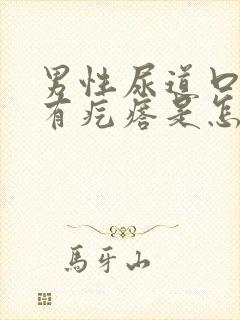 男性尿道口
有疙瘩是怎
馬牙山